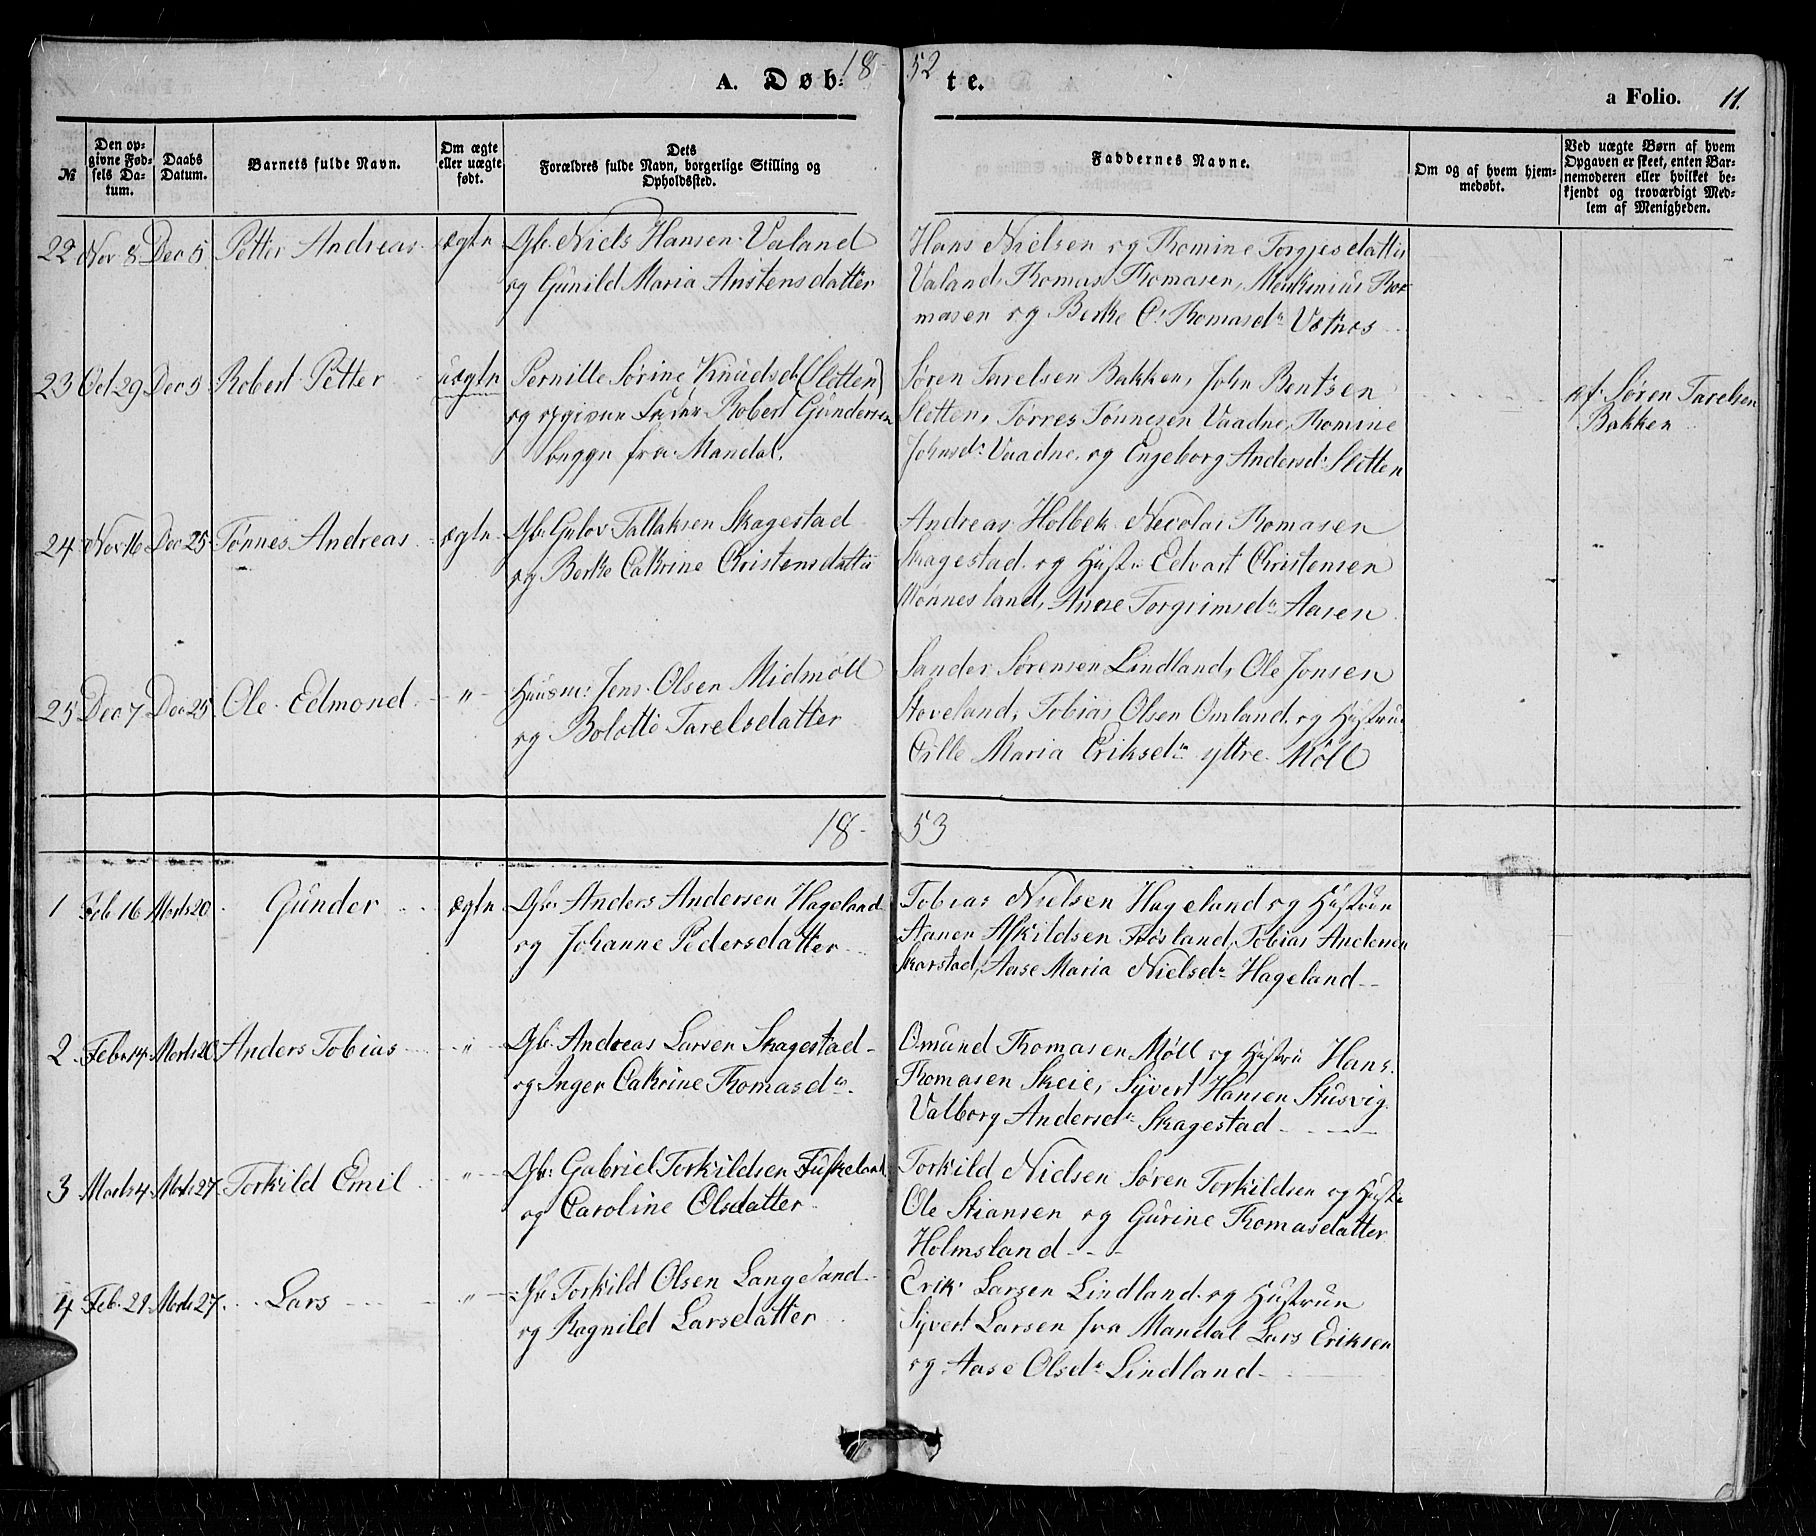 18 52
A. Døb: te.
a Folio. 11.
№
Den opgivne Fødsels Datum.
Daabs Datum.
Barnets fulde Navn.
Om ægte eller uægte født.
Dets Forældres fulde Navn, borgerlige Stilling og Opholdssted.
Faddernes Navne.
Om og af hvem hjemmedøbt.
Ved uægte Børn af hvem Opgaven er skeet, enten Barnemoderen eller hvilket bekjendt og troværdigt Medlem af Menigheden.
22 Nov 8 Dec 5 Petter Andreas ægte Gb. Niels Hansen Valand
og Gunild Maria Anstensdatter
Hans Nielsen og Thomine Torgjesdatter
Valand, Thomas Thomasen, Thomasen og Berthe C. Thomasd. Vatnes
23 Oct 29 Dec 5 Robert Petter uægte Pernille Sørine Knudsd. (Sletten)
og opgiven Fader Robert Gundersen
begge fra Mandal.
Søren Tarelsen Bakken, John Bentsen
Sletten, Tørres Tønnesen Vaadne, Thomine
Johnsd. Vaadne, og Engeborg Andersd. Sletten
af Søren Tarelsen
Bakken
24 Nov 16 Dec 25 Tønnes Andreas ægte Gb. Gulov Tallaksen Skagestad
og Berthe Cathrine Christensdatter
Andreas Holbek, Necolai Thomasen
Skagestad og Hustru Edvart Christensen
Mønnesland, Anne Torgrimsd. Aasen
25 Dec 7 Dec 25 Ole Edmond " Huusm: Jens Olsen Midmöll
og Bolotte Tarelsdatter
Sander Sørensen Lindland, Ole Jonsen
Stoveland, Tobias Olsen Omland og Hustrue
Cille Maria Eriksd. yttre Möll
18 53
1 Feb 16 Marts 20 Gunder ægte Gb. Anders Andersen Hageland
og Johanne Pedersdatter
Tobias Nielsen Hageland og Hustrun
Aanen Afkildsen Frøsland, Tobias Andersen
Skarstad, Aase Maria Nielsd. Hageland
2 Feb. 14 Marts 20 Anders Tobias " Gb. Andreas Larsen Skagestad
og Inger Cathrine Thomasd.
Omund Thomasen Möll og Hustru Hans
Thomasen Skeie, Syvert Hansen Stusvig
Valborg Andersd. Skagestad
3 Marts 4 Marts 27 Torkild Emil " Gb. Gabriel Torkildsen Fuskeland
og Caroline Olsdatter
Torkild Nielsen Søren Torkildsen og Hust.
Ole Stiansen og Gurine Thomasdatter
Holmsland
4 Feb. 21 Marts 27 Lars " Gb. Torkild Olsen Langeland
og Ragnild Larsdatter
Erik Larsen Lindland og Hustrun
Syvert Larsen fra Mandal Lars Eriksen
og Aase Olsd. Lindland